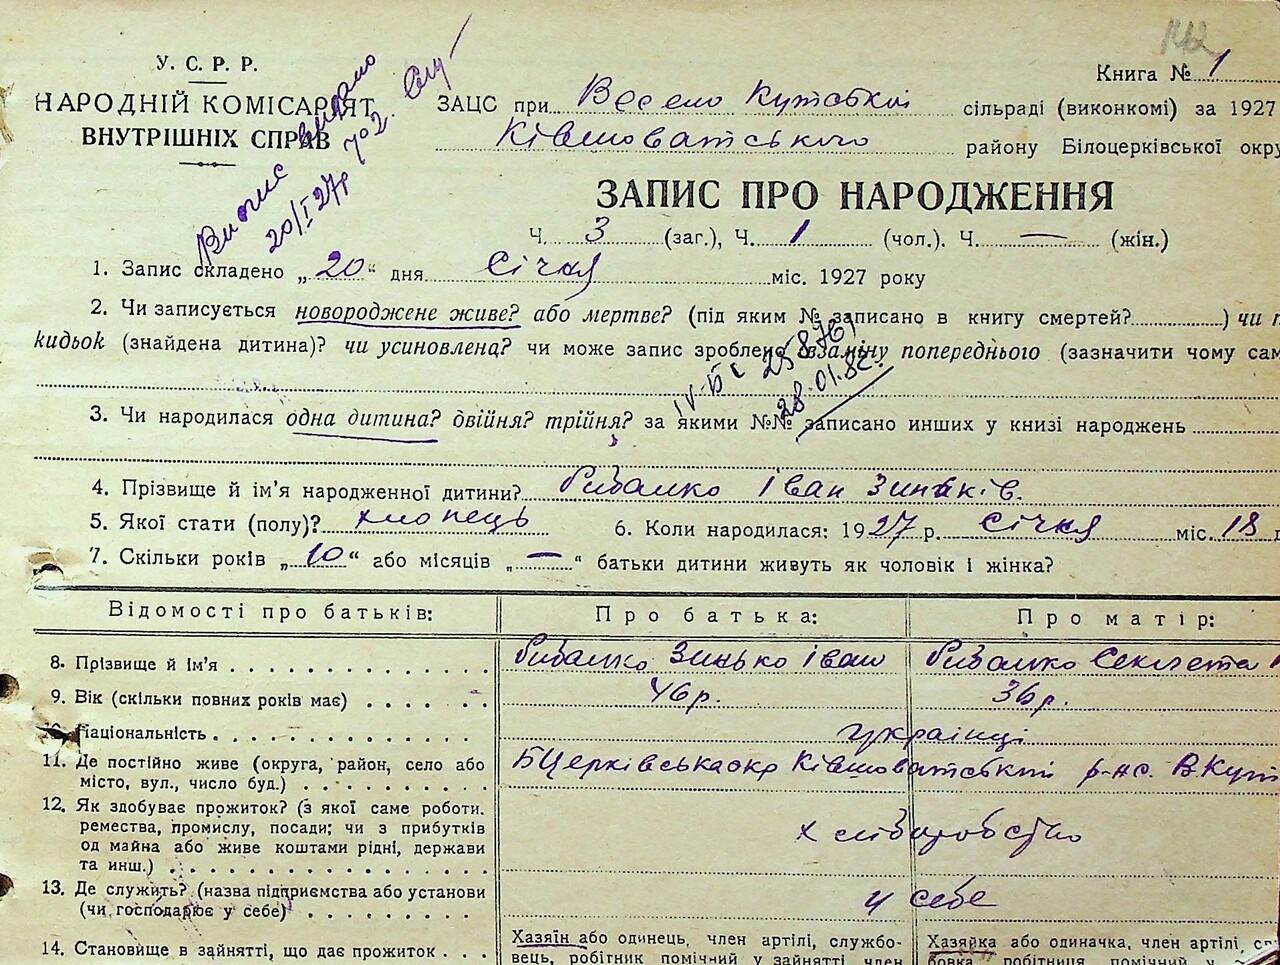 142
У. С. Р. Р.
НАРОДНІЙ КОМІСАРІЯТ
ВНУТРІШНІХ СПРАВ
Випис видано
20/I 27р № 2.
Книга № 1
ЗАЦС при Весело Кутській сільраді (виконкомі) за 1927
Ківшоватського району Білоцерківської окру
ЗАПИС ПРО НАРОДЖЕННЯ
Ч. 3 (заг.), Ч. 1 (чол.). Ч. — (жін.)
1. Запис складено „20“ дня Січня міс. 1927 року
2. Чи записується новороджене живе? або мертве? (під яким № записано в книгу смертей?) чи п
кидьок (знайдена дитина)? чи усиновлена? чи може запис зроблено взаміну попереднього (зазначити чому сам
IV-БК 258761
28.01.82.
3. Чи народилася одна дитина? двійня? трійня? за якими №№ записано инших у книзі народжень
4. Прізвище й ім'я народженної дитини? Рибалко Іван Зиньків.
5. Якої стати (полу)? хлопець 6. Коли народилася: 1927 р. Січня міс. 18 д
7. Скільки років „10“ або місяців „—“ батьки дитини живуть як чоловік і жінка?
Відомості про батьків: Про батька: Про матір:
8. Прізвище й ім'я Рибалко Зинько Іван Рибалко Секлета
9. Вік (скільки повних років має) 46 р. 36 р.
10. Національність українці
11. Де постійно живе (округа, район, село або
місто, вул., число буд.) БЦерківська окр Ківшоватський р-н с. В.Кут
12. Як здобуває прожиток? (з якої саме роботи.
ремества, промислу, посади; чи з прибутків
од майна або живе коштами рідні, держави
та инш.) хліборобство
13. Де служить? (назва підприємства або установи
(чи господарює у себе) у себе
14. Становище в зайнятті, що дає прожиток
Хазяїн або одинець, член артілі, службо-
вець, робітник помічний у зайнятті член
Хазяйка або одиначка, член артілі, сл
бовка, робітниця помічний у